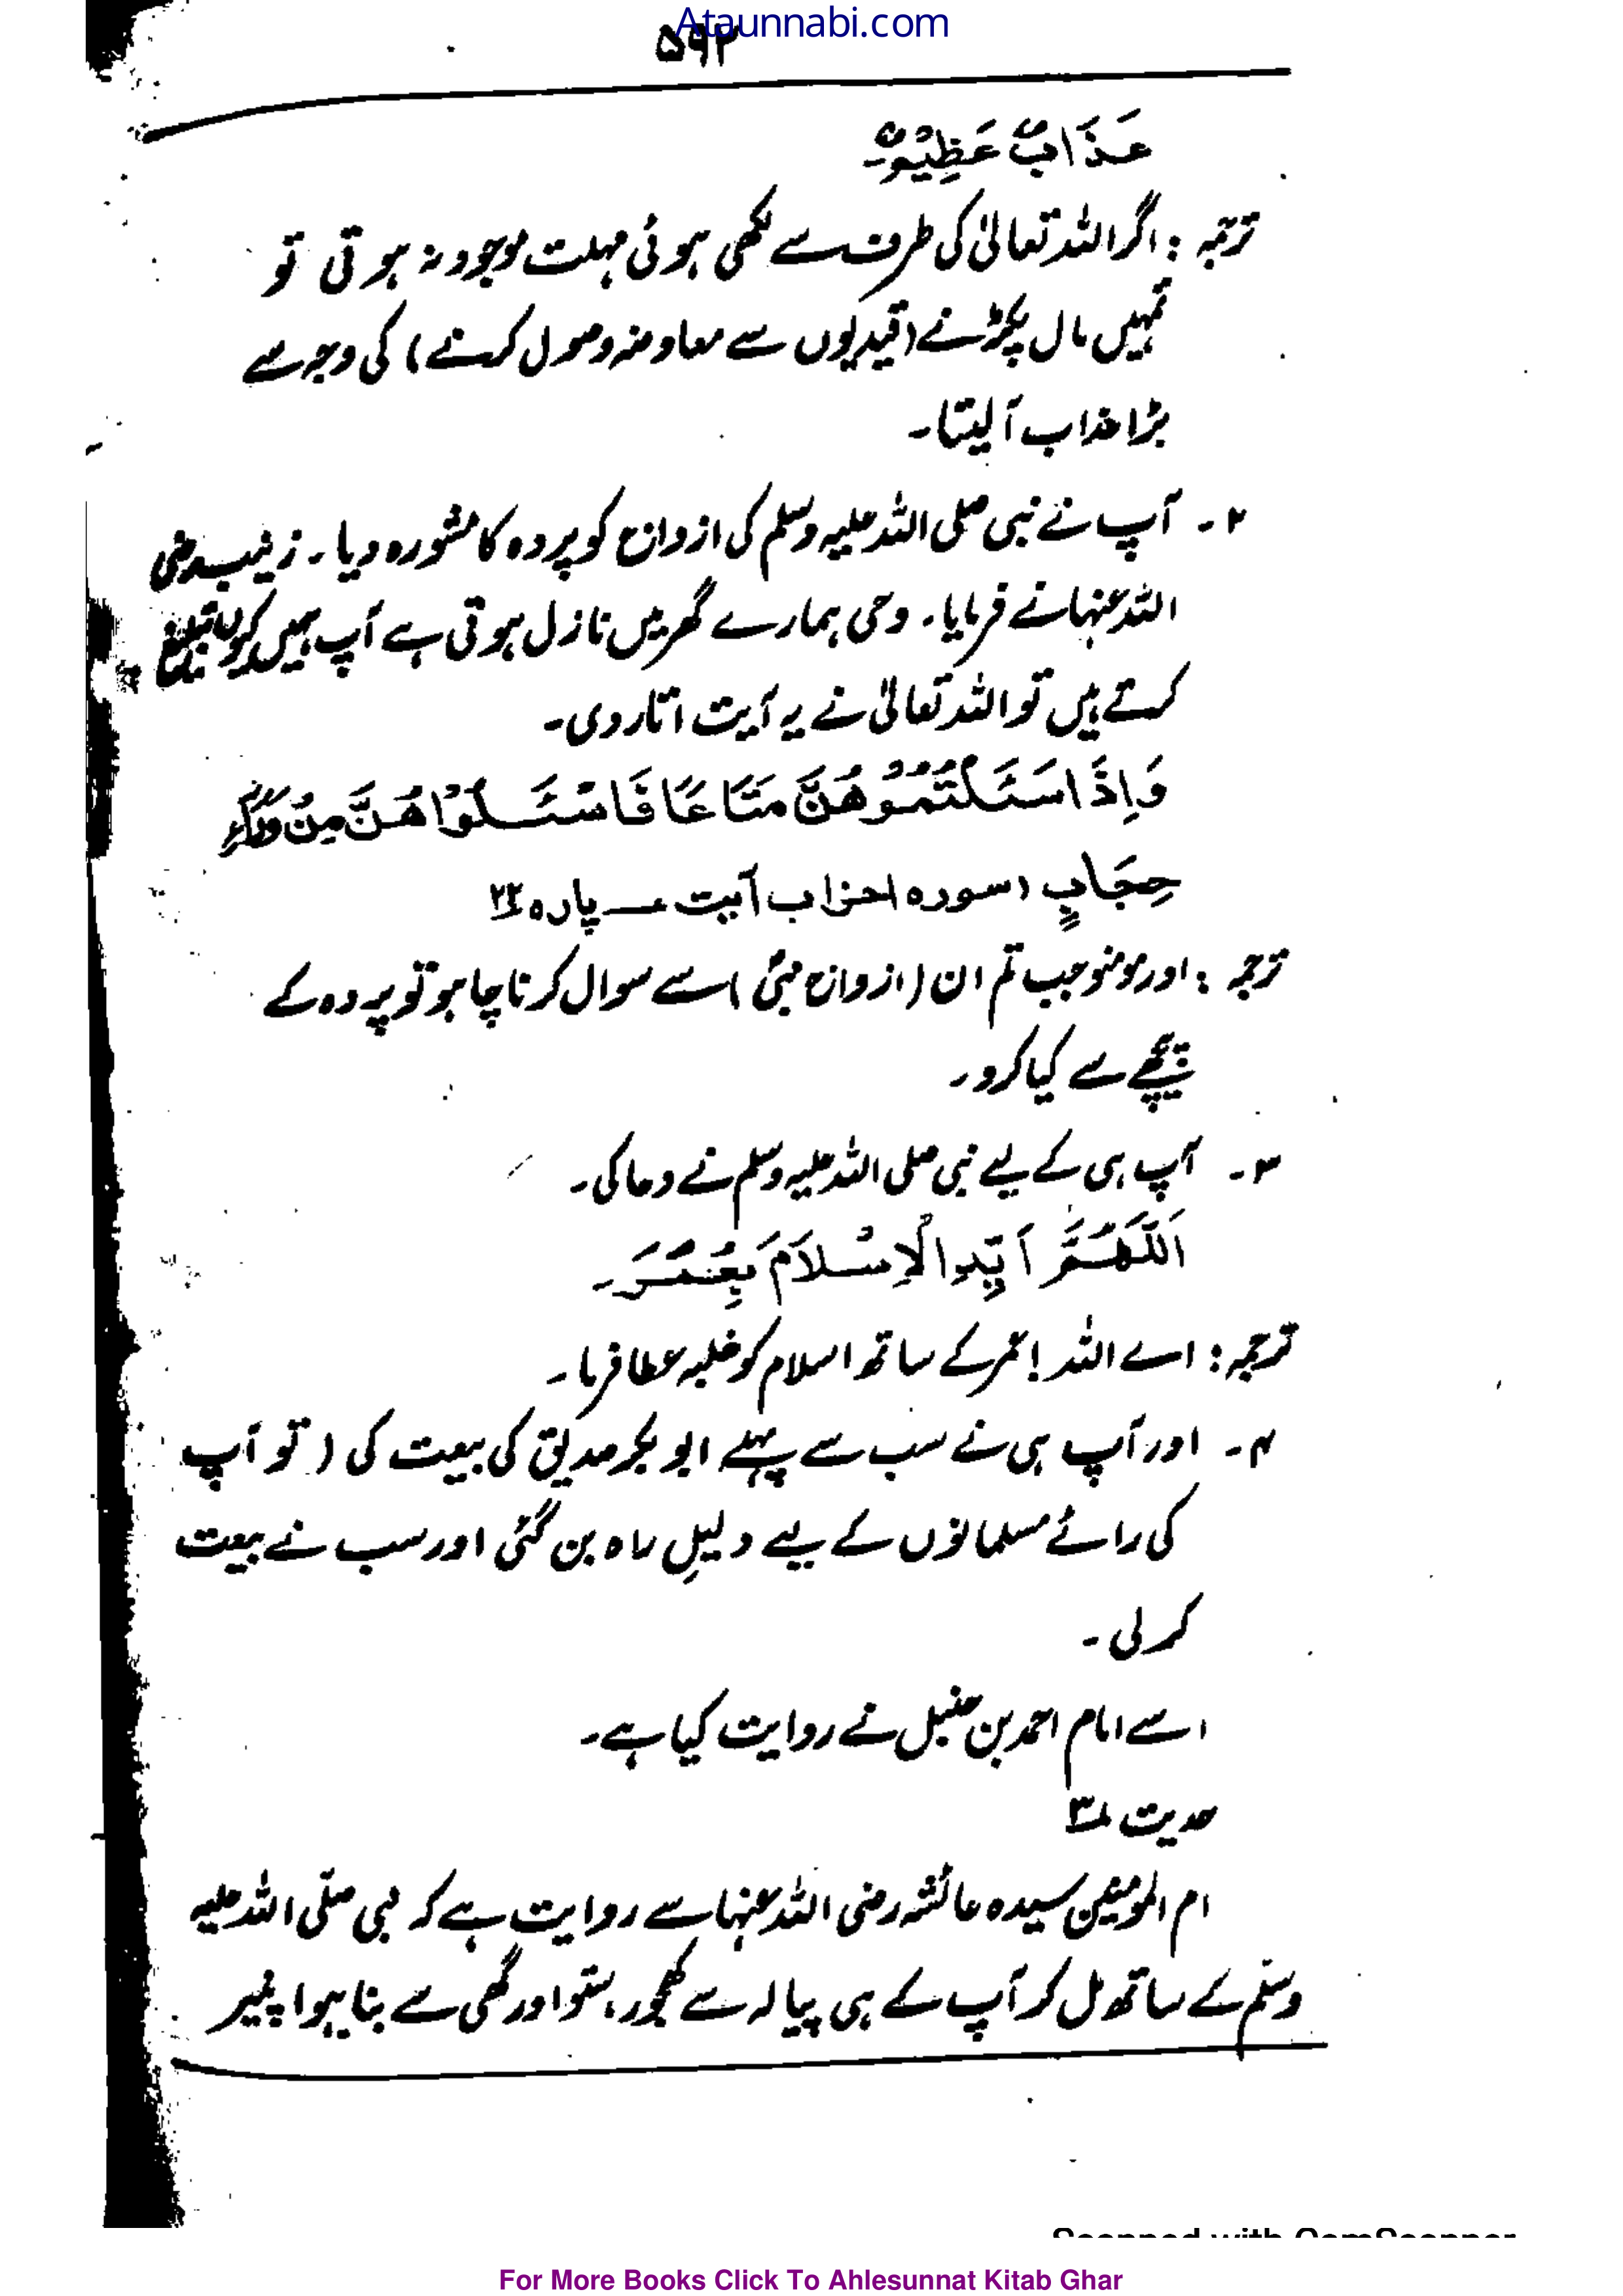 Ataunnabi.com
۵۹۲
عَذَابٌ عَظِیْمٌ۔
ترجمہ : اگر اللہ تعالیٰ کی طرف سے لکھی ہوئی مہلت موجود نہ ہوتی تو
تمہیں مال پکڑنے (قیدیوں سے معاوضہ وصول کرنے) کی وجہ سے
بڑا عذاب آ لیتا۔
۲۔ آپ نے نبی صلی اللہ علیہ وسلم کی ازواج کو پردہ کا مشورہ دیا۔ زینب رضی
اللہ عنہا نے فرمایا۔ وحی ہمارے گھر میں نازل ہوتی ہے آپ ہمیں کیوں تبلیغ
کرتے ہیں تو اللہ تعالیٰ نے یہ آیت اتار دی۔
وَاِذَا سَئَلْتُمُوْهُنَّ مَتَاعًا فَاسْئَلُوْاهُنَّ مِنْ وَرَآءِ
حِجَابٍ (سورہ احزاب آیت ـــ پارہ ۲۲
ترجمہ : اور مومنو جب تم ان (ازواج نبیؐ) سے سوال کرنا چاہو تو پردہ کے
پیچھے سے کیا کرو۔
۳۔ آپ ہی کے لیے نبی صلی اللہ علیہ وسلم نے دعا کی۔
اَللّٰهُمَّ اَیِّدِ الْاِسْلَامَ بِعُمَرَ۔
ترجمہ : اے اللہ ! عمر کے ساتھ اسلام کو غلبہ عطا فرما۔
۴۔ اور آپ ہی نے سب سے پہلے ابو بکر صدیق کی بیعت کی (تو آپ
کی رائے مسلمانوں کے لیے دلیلِ راہ بن گئی اور سب نے بیعت
کر لی۔
اسے امام احمد بن حنبل نے روایت کیا ہے۔
حدیث
ام المومنین سیدہ عائشہ رضی اللہ عنہا سے روایت ہے کہ نبی صلّی اللہ علیہ
وسلّم کے ساتھ مل کر آپ کے ہی پیالہ سے کھجور، ستو اور گھی سے بنا ہوا پنیر
Scanned with CamScanner
For More Books Click To Ahlesunnat Kitab Ghar